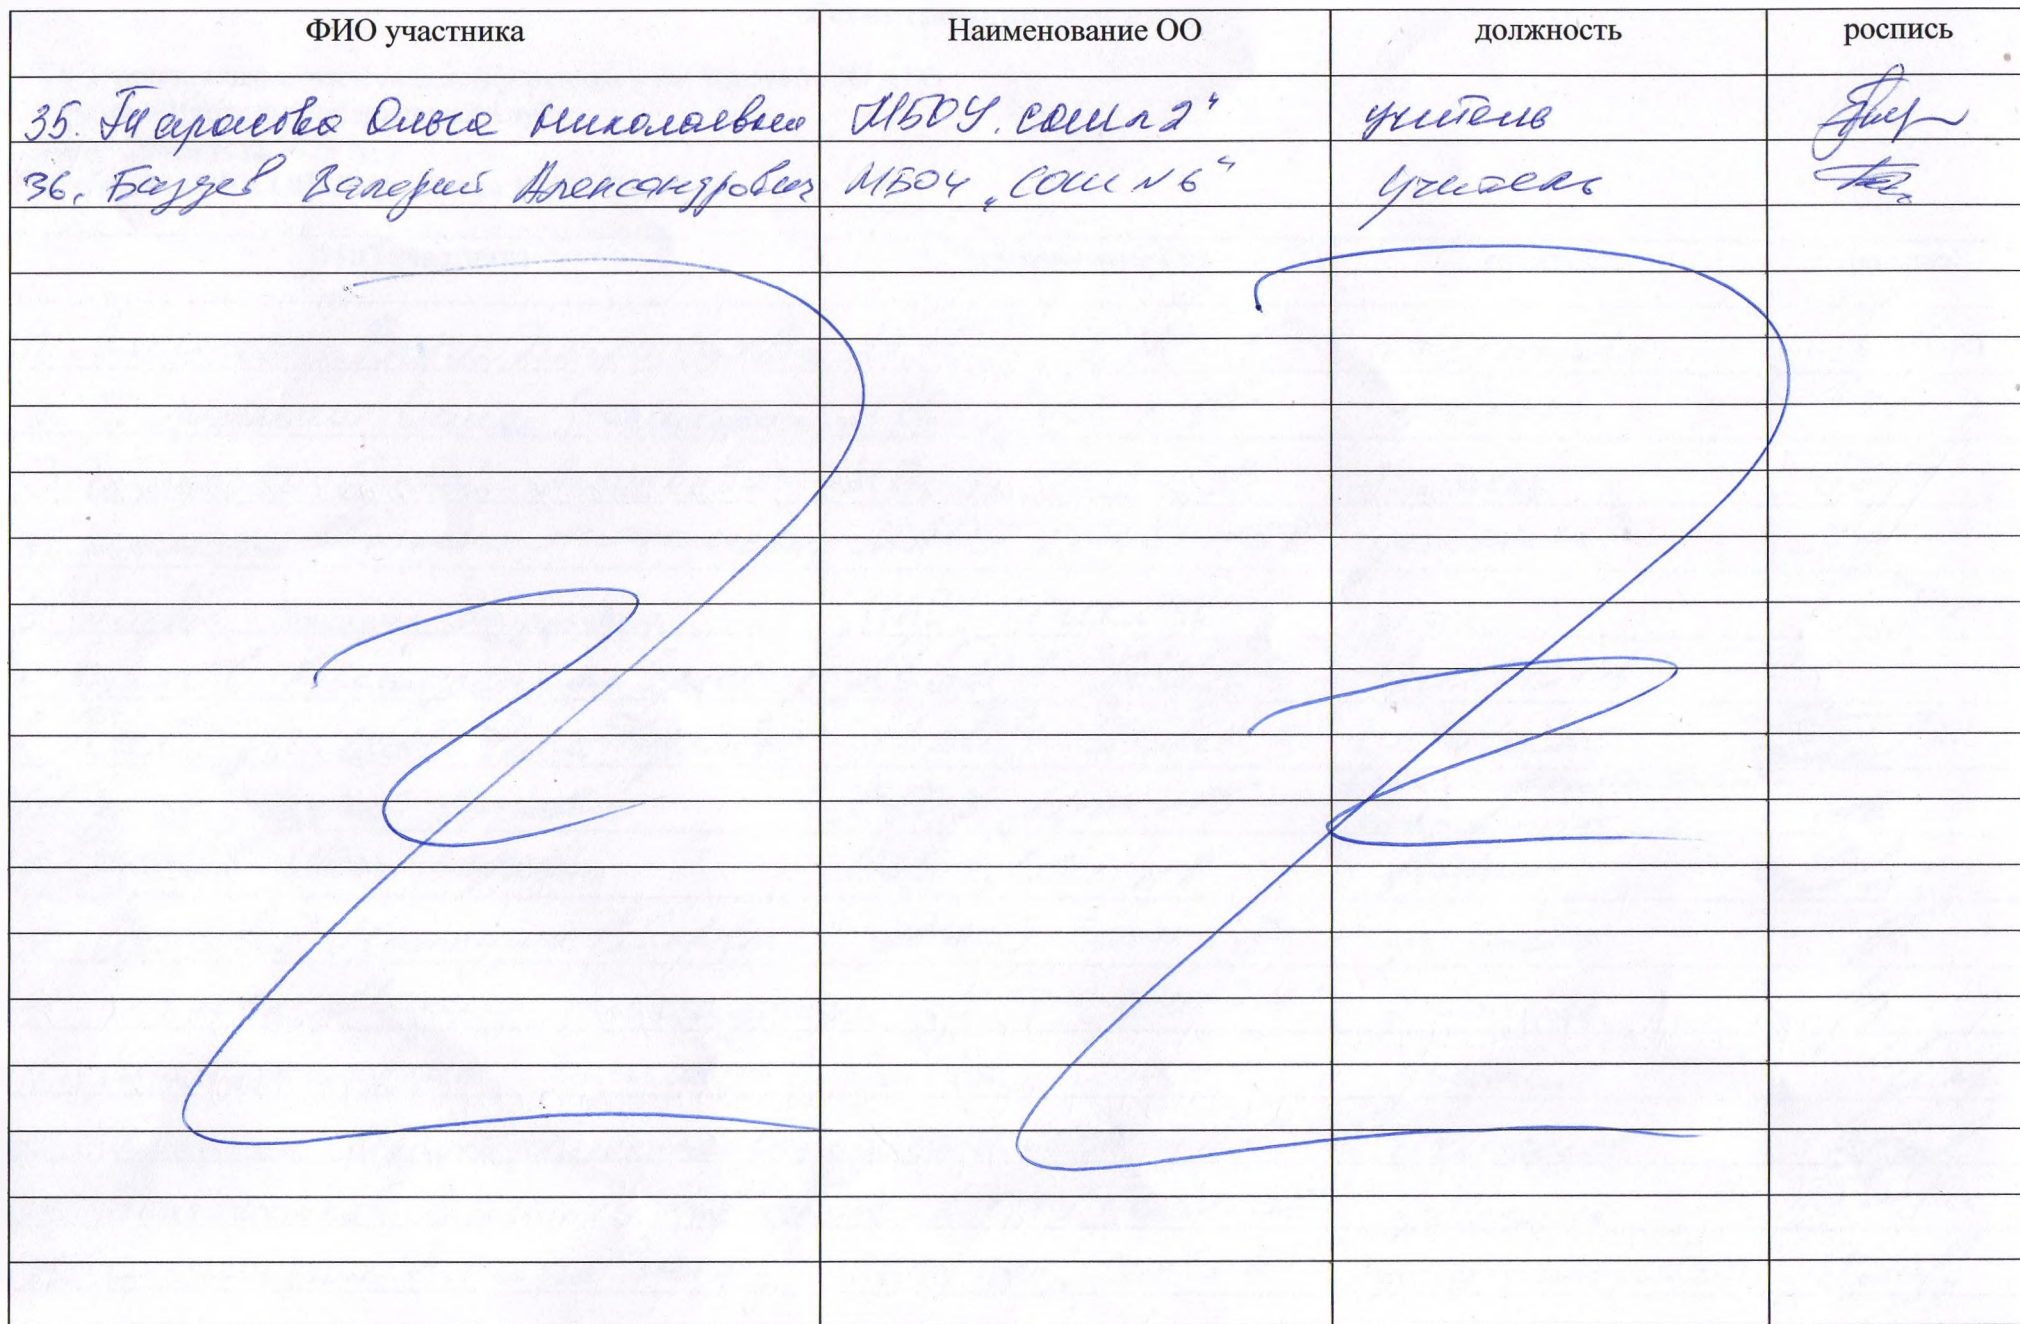 ФИО участника Наименование ОО должность роспись
35. Тарасова Ольга Николаевна МБОУ. сош n 2" учитель
36. Валерий Александрович МБОУ „СОШ N 6" учитель